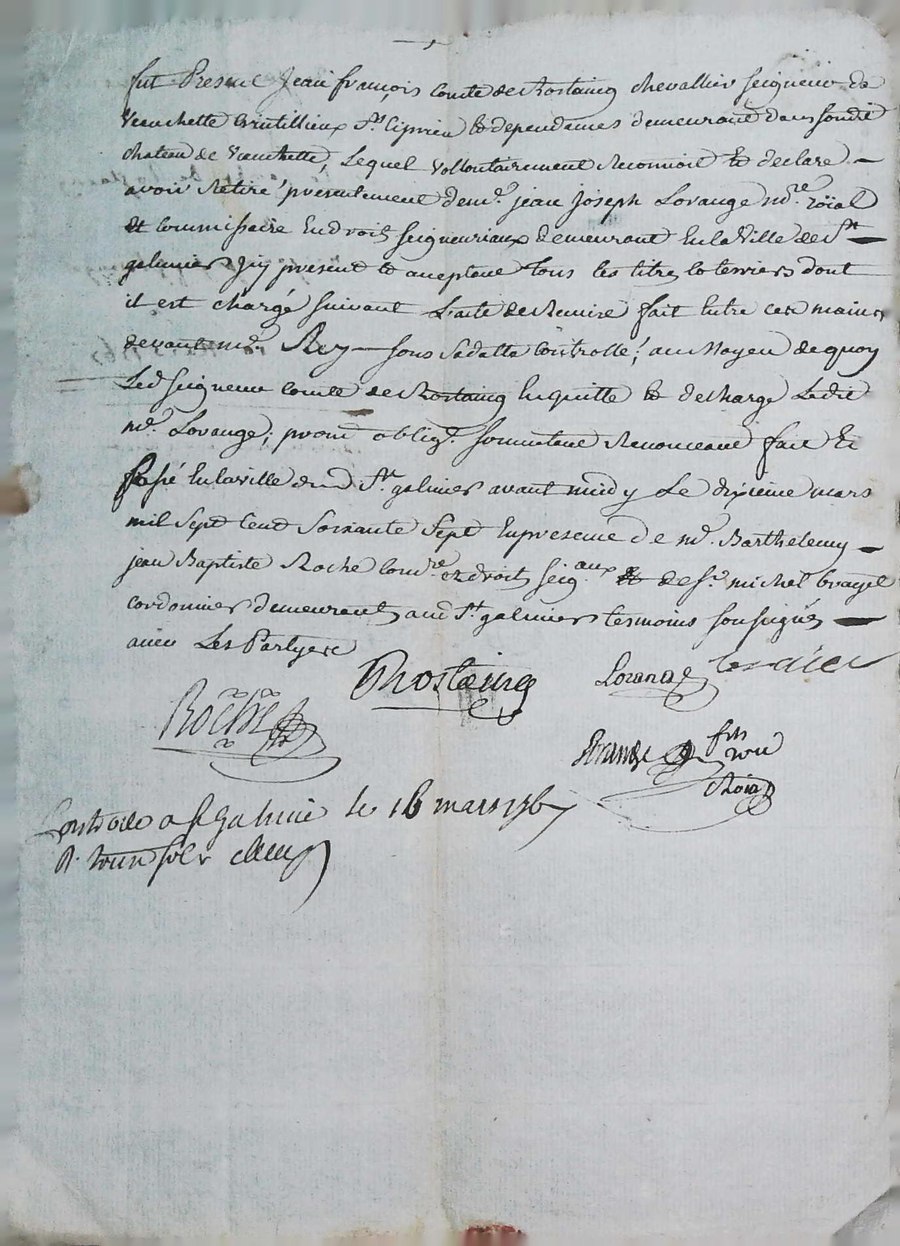 fut Present Jean françois Comte de Rostaing chevallier seigneur de
Veauchette Crintillieux St Ciprien & dependances demeurant dans son dit
chateau de Veauchette, Lequel vollontairement Reconnoit & declare –
avoir Retiré présentement de me. jean Joseph Lorange nre. roïal
& Commissaire En droits seigneuriaux demeurant En la Ville de St –
galmier Icy present & aceptant Tous les titres & terriers dont
il est chargé suivant L'acte de Remise fait Entre ces mains
devant me. Rey – sous sa datte Controllé; au Moyen de quoy
Led seigneur Comte de Rostaing En quitte & decharge Ledit
me. Lorange; prom obligt. soumettant Renonceant fait &
Passé En la ville dud St. galmier avant midy Le dixieme mars
mil sept Cent soixante sept En presence de me. Barthelemy –
jean Baptiste Roche Comre. en droits seig.aux & de sr. michel
cordonnier demeurants aud St. galmier temoins soussignés –
avec Les Partyes
Rostaing Lorange
Roche
Lorange nre
Roial
Controlé a St Galmier le 16 mars 1767
R. sols